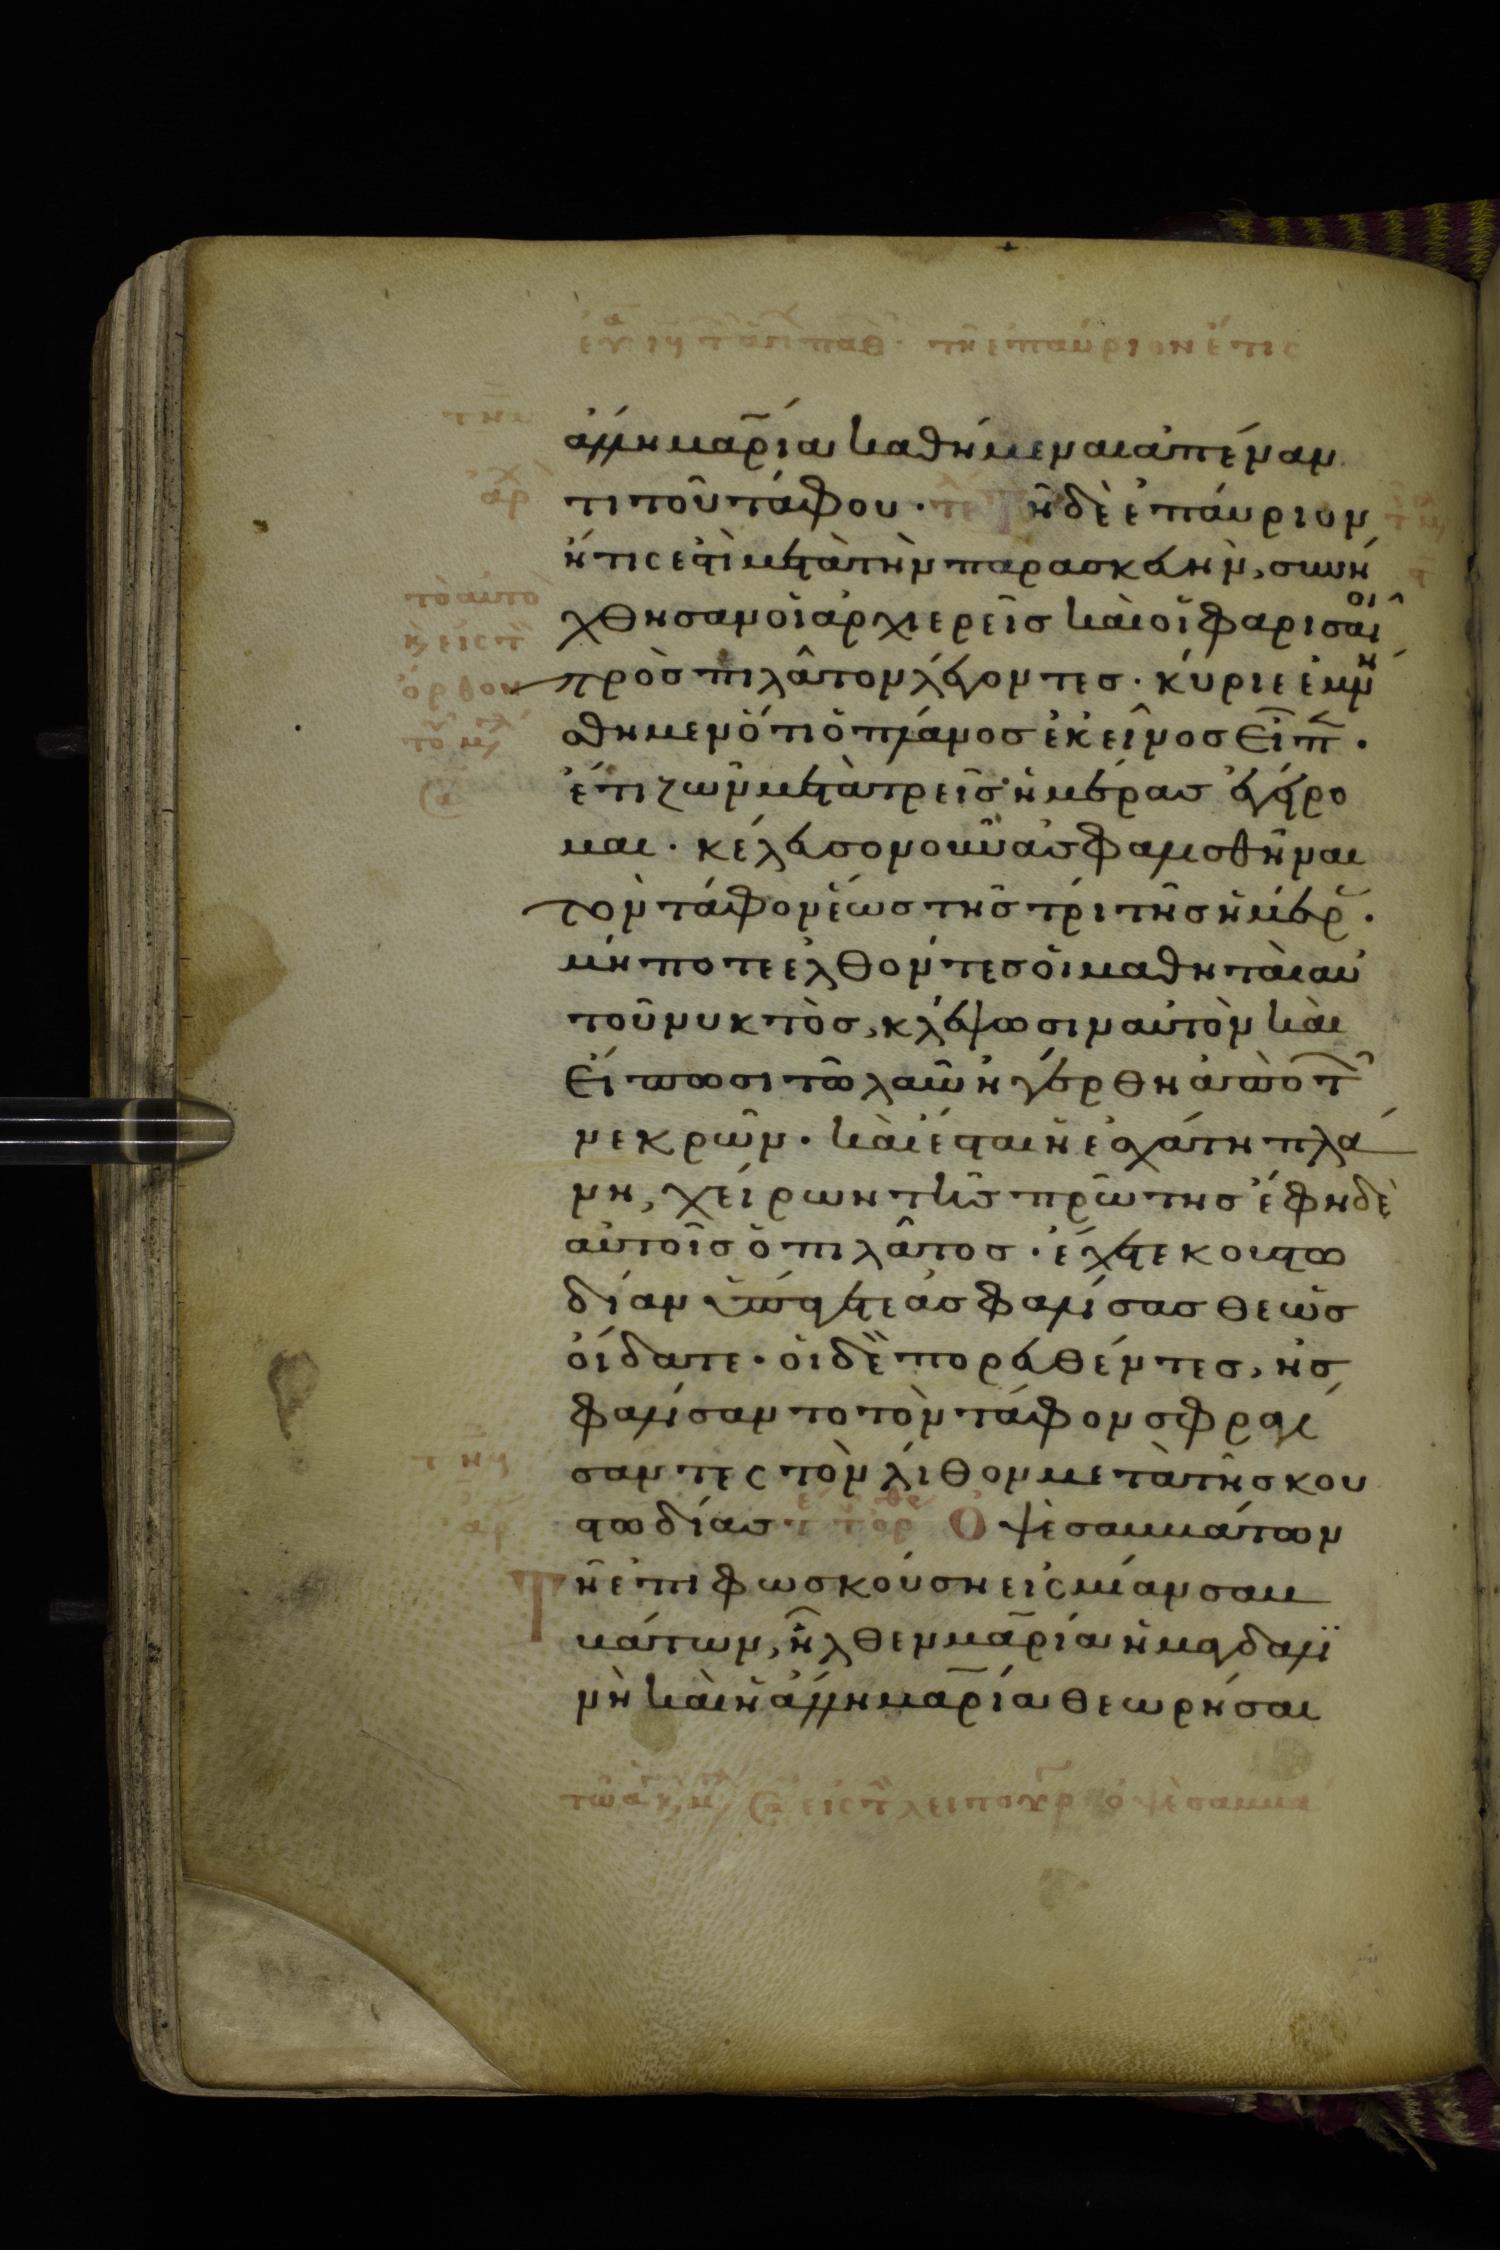 τῇ ἐπαύριον ἥτις
ἄλλη μαρία καθήμεναι ἀπέναν
τι τοῦ τάφου · τῆ δὲ ἐπάυριον
ἥτις ἐστὶ μετὰ τὴν παρασκευὴν, συνή
χθησαν οἱ ἀρχιερεῖς καὶ οἱ φαρισαῖοι
πρὸς πιλᾶτον λέγοντες · κύριε ἐμνή
σθημεν ὅτι ὁ πλάνος ἐκεῖνος εἶπ ·
ἔτι ζῶν μετὰ τρεῖς ἡμέρας ἐγείρο
μαι · κέλευσον οὖν ἀσφαλισθῆναι
τὸν τάφον ἕως τῆς τρίτης ἡμέρ ·
μήποτε ἐλθόντες οἱ μαθηταὶ αὐ
τοῦ νυκτὸς, κλέψωσιν αὐτὸν καὶ
εἴπωσι τῶ λαῶ ἠγέρθη ἀπὸ τῶν
νεκρῶν · καὶ ἔσται ἡ ἐσχάτη πλά
νη, χείρων τῆς πρώτης ἔφη δὲ
αὐτοῖς ὁ πιλᾶτος · ἔχετε κουστω
δίαν ὑπάγετε ἀσφαλίσασθε ὡς
οἴδατε · οἱ δὲ πορευθέντες, ἠσ
φαλίσαντο τὸν τάφον σφραγί
σαντες τὸν λίθον μετὰ τῆς κου
στωδίας Ὀψὲ σαββάτων
Τῆ ἐπιφωσκούση εἰς μίαν σαβ
βάτων, ἦλθεν μαρία ἡ μαγδαλϊ
νὴ καὶ ἡ ἄλλη μαρία θεωρῆσαι
ὀψὲ σαββά